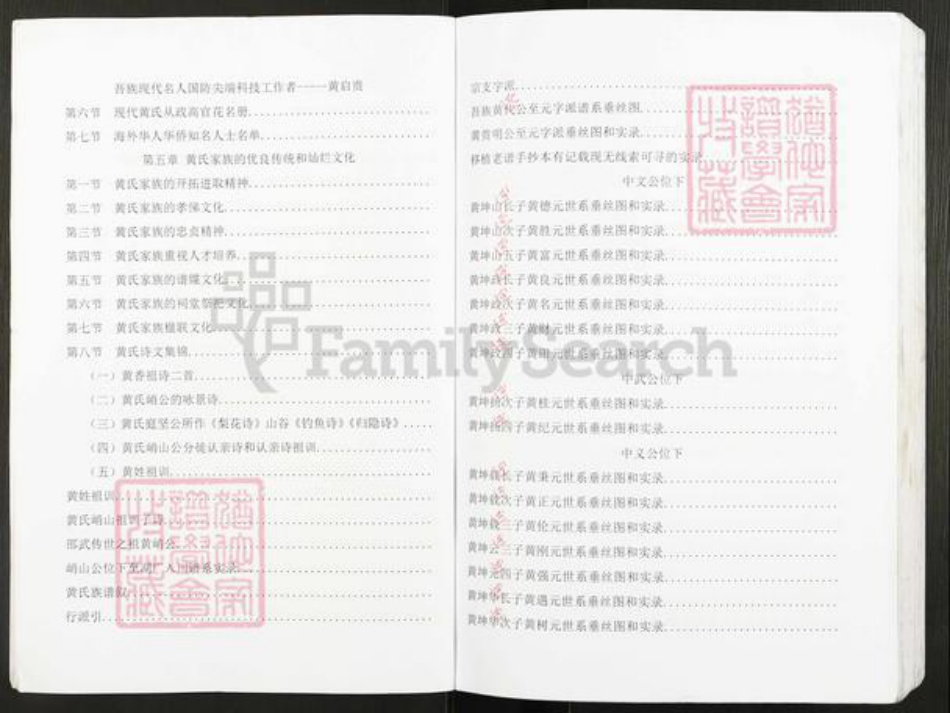 吾族现代名人国防尖端科技工作者----黄启贵
第六节 现代黄氏从政高官花名册
第七节 海外华人华侨知名人士名单
第五章 黄氏家族的优良传统和灿烂文化
第一节 黄氏家族的开拓进取精神
第二节 黄氏家族的孝悌文化
第三节 黄氏家族的忠贞精神
第四节 黄氏家族重视人才培养
第五节 黄氏家族的谱牒文化
第六节 黄氏家族的祠堂祭祀文化
第七节 黄氏家族楹联文化
第八节 黄氏诗文集锦
（一）黄香祖诗二首
（二）黄氏峭公的咏景诗
（三）黄氏庭坚公所作《梨花诗》山谷《钓鱼诗》《归隐诗》
（四）黄氏峭山公分徒认亲诗和认亲诗祖训
（五）黄姓祖训
黄姓祖训
黄氏峭山祖训子诗
邵武传世之祖黄峭公
峭山公位下至湖广入川谱系实录
黄氏族谱叙
行派引
宗支字派
吾族黄化公至元字派谱系垂丝图
黄贵明公至元字派垂丝图和实录
移植老谱手抄本有记载现无线索可寻的实录
中文公位下
黄坤山长子黄德元世系垂丝图和实录
黄坤山次子黄胜元世系垂丝图和实录
黄坤山五子黄富元世系垂丝图和实录
黄坤 长子黄良元世系垂丝图和实录
黄坤 子黄名元世系垂丝图和实录
黄坤 三子黄财元世系垂丝图和实录
黄坤 四子黄田元世系垂丝图和实录
中武公位下
黄坤 次子黄桂元世系垂丝图和实录
黄坤 四子黄纪元世系垂丝图和实录
中文公位下
黄坤 长子黄秉元世系垂丝图和实录
黄坤 次子黄正元世系垂丝图和实录
黄坤 三子黄伦元世系垂丝图和实录
黄坤云 子黄刚元世系垂丝图和实录
黄坤 四子黄强元世系垂丝图和实录
黄坤华长子黄遇元世系垂丝图和实录
黄坤华次子黄树元世系垂丝图和实录
FamilySearch